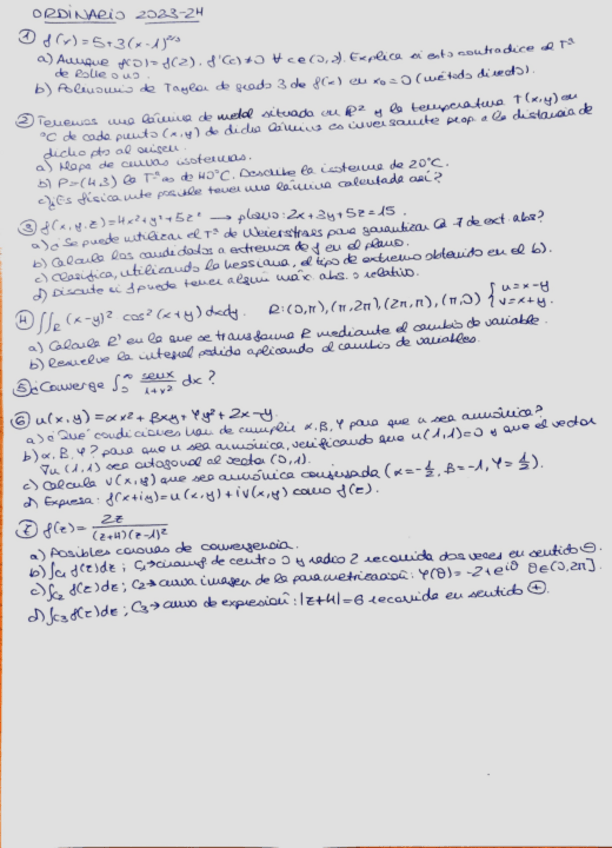 ORDINARIO 2023-24
① f(x)=5+3(x-1)^2/3
a) Aunque f(0)=f(2). f'(c)≠0 ∀ c∈(0,2). Explica si esto contradice el Tª
de Rolle o no.
b) Polinomio de Taylor de grado 3 de f(x) en x₀=0 (método directo).
② Tenemos una lámina de metal situada en ℝ² y la temperatura T(x,y) en
ºC de cada punto (x,y) de dicha lámina es inversamente prop. a la distancia de
dicho pto al origen.
a) Mapa de curvas isotermas.
b) P=(4,3) la Tª es de 40ºC. Describe la isoterma de 20ºC.
c) ¿Es físicamente posible tener una lámina calentada así?
③ f(x,y,z)=4x²+y²+5z² → plano: 2x+3y+5z=15.
a) ¿Se puede utilizar el Tª de Weierstrass para garantizar la ∃ de ext. abs?
b) Calcula los candidatos a extremos de f en el plano.
c) Clasifica, utilizando la hessiana, el tipo de extremo obtenido en el b).
d) Discute si f puede tener algún máx. abs. o relativo.
④ ∬R (x-y)² cos²(x+y) dxdy. R:(0,π),(π,2π),(2π,π),(π,0) { u=x-y
v=x+y.
a) Calcula R' en la que se transforma R mediante el cambio de variable.
b) Resuelve la integral pedida aplicando el cambio de variables.
⑤ ¿Converge ∫₀^∞ senx/1+x² dx?
⑥ u(x,y)=αx²+βxy+γy²+2x-y.
a) ¿Qué condiciones han de cumplir α,β,γ para que u sea armónica?
b) α,β,γ? para que u sea armónica, verificando que u(1,1)=0 y que el vector
∇u(1,1) sea ortogonal al vector (0,1).
c) Calcula v(x,y) que sea armónica conjugada (α=-1/2, β=-1, γ=1/2).
d) Expresa: f(x+iy)=u(x,y)+iv(x,y) como f(z).
⑦ f(z)= 2z/(z+4)(z-1)²
a) Posibles coronas de convergencia.
b) ∫c₁ f(z)dz; C₁→circunf de centro 0 y radio 2 recorrida dos veces en sentido ⊖.
c) ∫c₂ f(z)dz; C₂→curva imagen de la parametrización: γ(θ)=-2+e^iθ θ∈(0,2π].
d) ∫c₃ f(z)dz; C₃→ curva de expresión: |z+4|=6 recorrida en sentido ⊕.